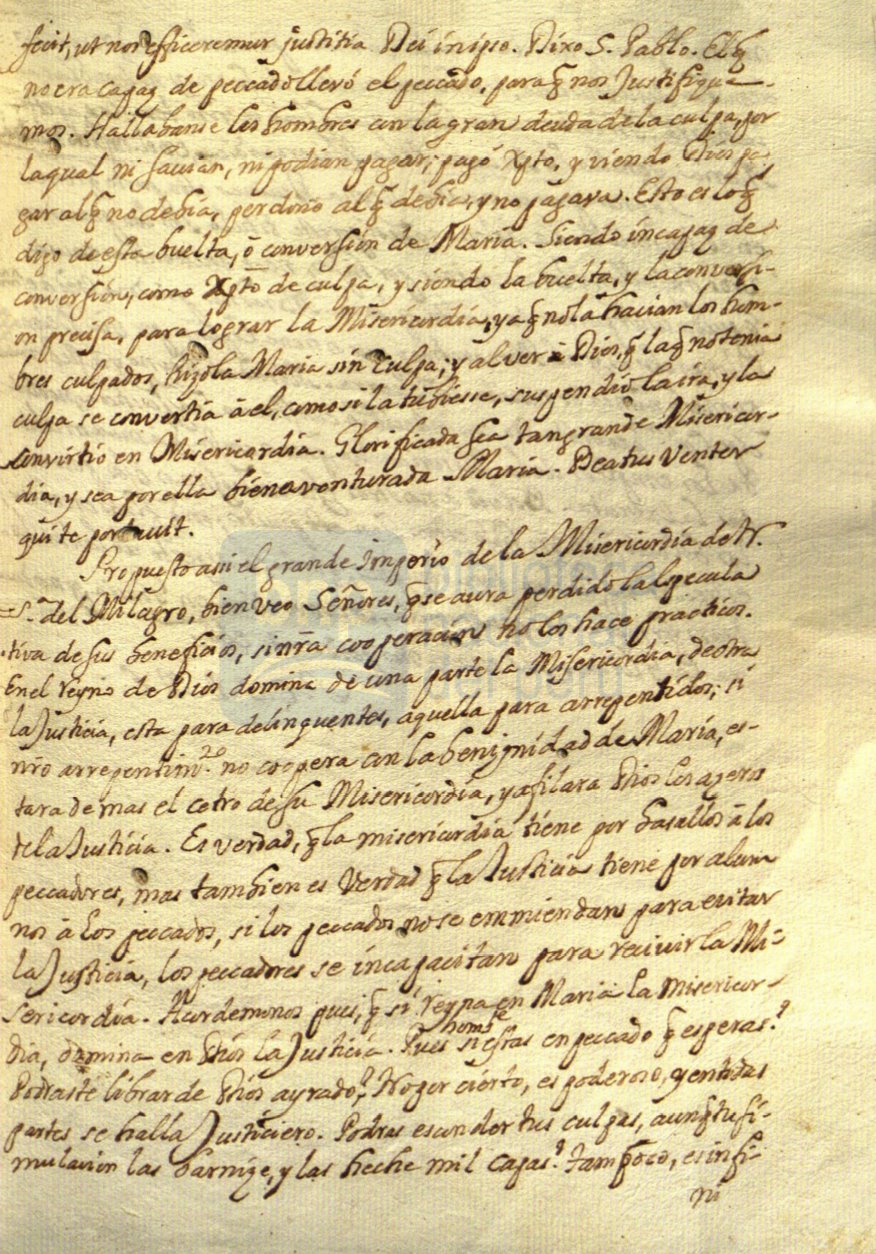 fecit, ut nos efficeremur justitia Dei in ipso. Dixo S. Pablo. El q̃
no era capaz de peccado llevó el peccado, para q̃ nos Justifique-
mos. Hallabanse los hombres con la gran deuda de la culpa, por
la qual ni savian, ni podian pagar; pagó Xpto, y viendo Dios pa
gar al q̃ no debia, perdonó al q̃ debia, y no pagava. Esto es lo q̃
digo de esta buelta, ó conversión de Maria. Siendo incapaz de
conversion, como Xpt̃o de culpa, y siendo la buelta, y la conversi-
on precisa, para lograr la Misericordia, ya q̃ no la hacian los hom-
bres culpados, hizola Maria sin culpa; y al ver Dios, q̃ la q̃ no tenia
culpa se convertia á el, como si la tubiesse, suspendió la ira, y la
convirtio en Misericordia. Glorificada sea tan grande Misericor-
dia, y sea por ella bienaventurada Maria. Beatus Venter
qui te portavit.
Propuesto assi el grande Imperio de la Misericordia de N.
S.ª del Milagro, bien veo Señores, q̃ se aura perdido la especula
tiva de sus beneficios, si nr̃a cooperacion no los hace practicos.
En el reyno de Dios domina de una parte la Misericordia, de otra
la Justicia, esta para delinquentes, aquella para arrepentidos; si
nr̃o arrepentim.to no coopera con la benignidad de Maria, es-
tara de mas el cetro de su Misericordia, y afilara Dios los azeros
de la Justicia. Es verdad, q̃ la misericordia tiene por basallos á los
peccadores, mas tambien es Verdad q̃ la Justicia tiene por alum
nos á los peccados, si los peccados no se emmiendan para evitar
la Justicia, los peccadores se incapacitan para recivir la Mi-
sericordia. Acordemonos pues, q̃ si reyna en Maria la misericor-
dia, domina en Dios la Justicia. Pues homb.e si estas en peccado q̃ esperas?
Podraste librar de Dios ayrado? No por cierto, es poderoso, y en todas
partes se halla Justiciero. Podras esconder tus culpas, aunq̃ tu si-
mulacion las barnize, y las heche mil capas? tampoco, es infi-
ni